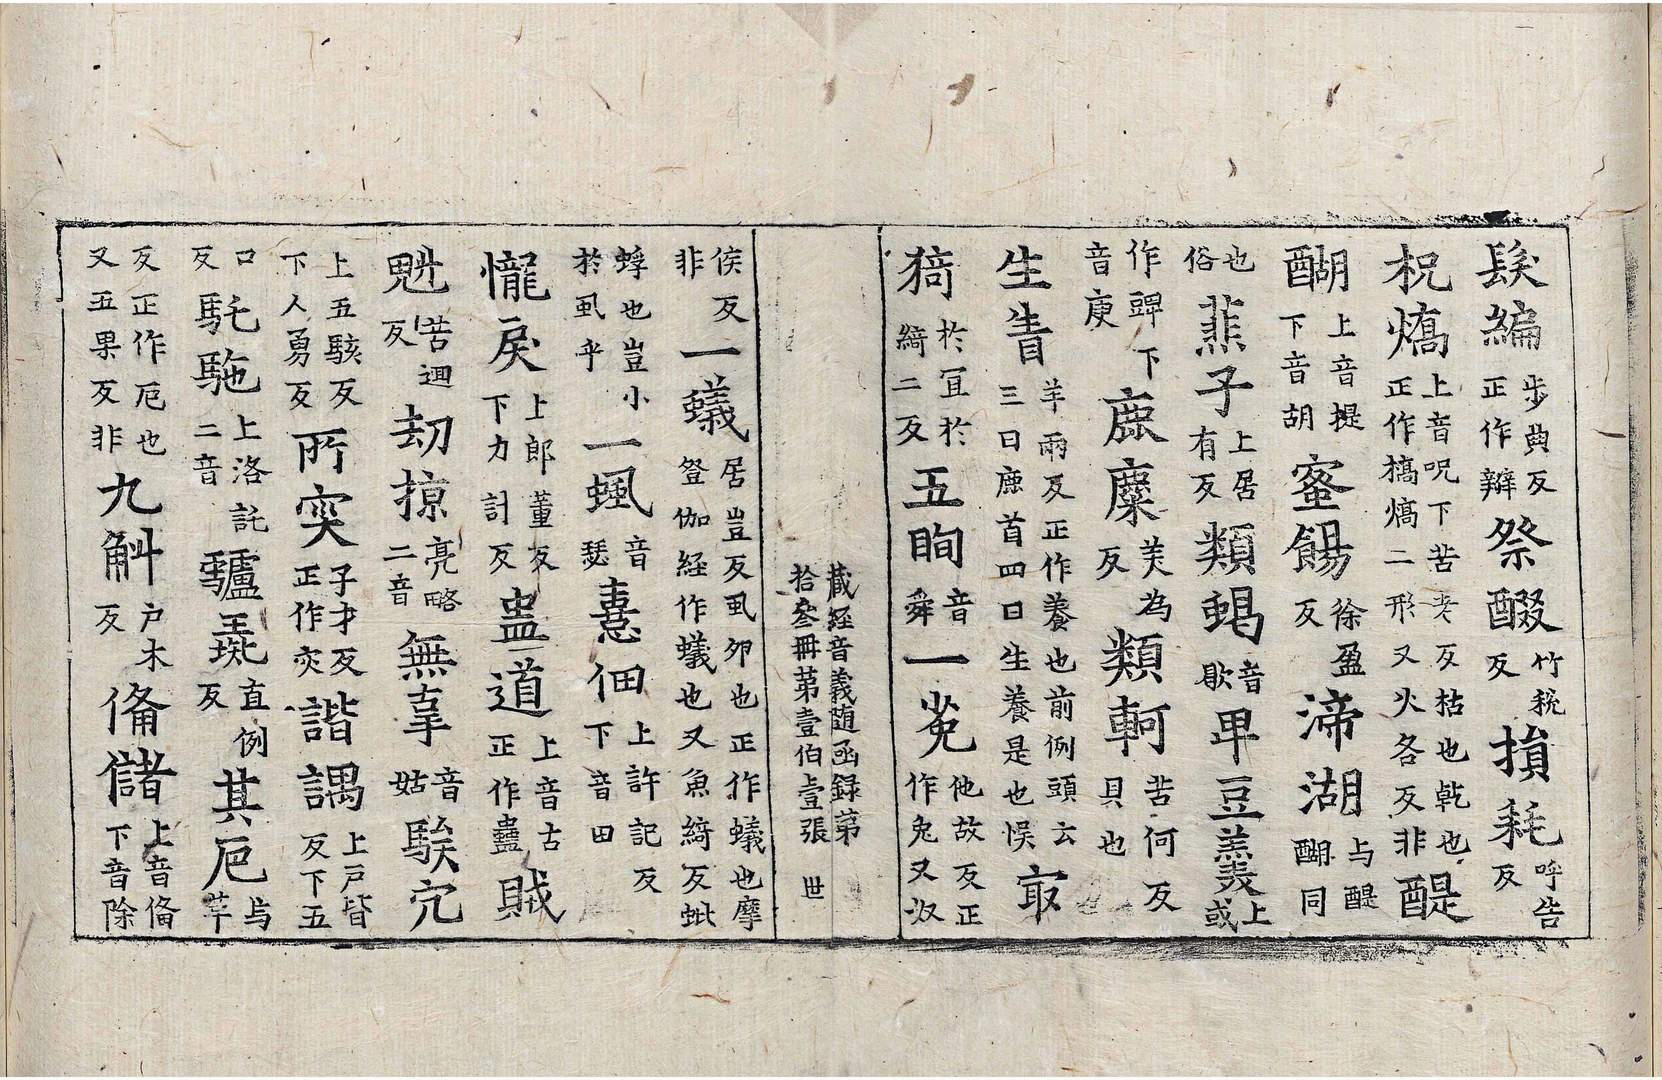 髮編步典反正作辮祭醊竹稅反損耗呼告反
柷熇上音呪下苦老反枯也乾也正作槁熇二形又火各反非醍
醐上音提下音胡蜜餳徐盈反渧湖与醍醐同
也俗韮子上居有反類蝎音歇卑豆羹上或
作豍下音庚鹿麋美為反類軻苦何反具也
生眚羊兩反正作養也前例頭云三曰鹿首四曰生養是也悮㝡
猗於冝於綺二反五眴音舜一莵他故反正作兔又
藏經音義随函録苐拾叄冊苐壹伯壹張 世
侯反非一蟻居豈反虱夘也正作蟻也摩登伽経作蟻也又魚綺反蚍
蜉也豈小於虱乎一䖝音瑟憙佃上許記反下音田
儱戾上郎董反下力計反蛊道上音古正作蠱賊
魁苦迴反刼掠亮略二音無辜音姑騃宂
上五駭反下人勇反所突子才反正作灾諧䛕上戸皆反下五
口反馲駞上洛託二音驢彘直例反其厄与草
反正作厄也又五果反非九斛户木反俻儲上音俻下音除